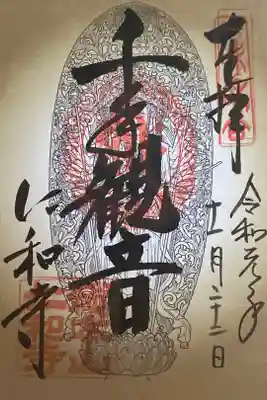 奉拝
令和元年
十一月二十二日
千手観音
仁和寺